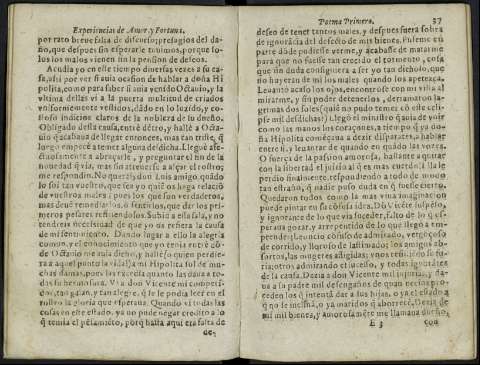 Experiencias de Amor y Fortuna.
por rato breue falsa de discurso; presagios del da-
ño, que despues sin esperarle tuuimos, porque so-
los los malos vienen sin la pension de deseos.
Acudia yo en este tiempo diuersas vezes a su ca-
sa, assi por ver si auia ocasion de hablar a doña Hi
polita, como para saber si auia venido Octauio, y la
vltima dellas vi a la puerta multitud de criados
vniformemente vestidos, dãdo en lo luzido, y co-
stoso indicios claros de la nobleza de su dueño.
Obligado desta causa, entrè dẽtro, y hallè a Octa-
uio q̃ acabaua de llegar entonces, mas tan triste, q̃
luego empecè a temer alguna desdicha. Lleguè afe-
ctuosamente a abraçarle, y preguntar el fin de la
nouedad q̃ via, mas sin atreuerse a alçar el rostro;
me respondio. No querais, don Luis amigo, quãdo
lo soi tan vuestro, que sea yo quiẽ os haga relaciõ
de vuestros males; pues los que son verdaderos,
mas deuẽ remediarlos, ò sentirlos, que dar los pri-
meros pesares refiriendolos. Subid a essa sala, y no
tendreis necessidad de que yo os refiera la causa
de mi sentimiento. Dando lugar a esto la alegria
comun, y el conocimiento que yo tenia entrè dõ-
de Octauio me auia dicho, y hallè (o quien perdie-
ra a aquel punto la vida!) a mi Hipolita sol de mu-
chas damas, pues las excedia quanto las daua a to-
das su hermosura. Vi a don Vicente mi competi-
dor, tan galan, y tan alegre, q̃ se le podia leer en el
rostro la gloria que esperaua. Quando vi todas las
cosas en este estado, ya no pude negar credito a lo
q̃ temia el pẽsamiẽto, porq̃ hasta aqui era falta de
de-
Poema Primero. 37
deseo de tener tantos males, y despues fuera sobra
de ignorãcia del defecto de mis bienes. Puseme en
parte dõde pudiesse verme, y acabasse de matarme
para que no fuesse tan crecido el tormento, cosa
que sin duda consiguiera a ser yo tan dichoso, que
no huyeran de mi los males quando los apetezca.
Leuantò acaso los ojos, encontròse con mi vista al
mirarme, y sin poder detenerlos, derramaron la-
grimas dos soles (quiẽ no pudo temer cõ este ecli-
pse mil desdichas!) Llegò el ministro q̃ auia de vnir
como las manos los coraçones, a tiempo q̃ ya do-
ña Hipolita começaua a dezir disparates, a hablar
entre si, y leuantar de quando en quãdo las vozes.
O fuerça de la passion amorosa, bastante a quitar
con la libertad el juizio al q̃ es mas cuerdo! a lla le
perdio finalmente, respondiendo a todo de modo
tan estraño, q̃ nadie puso duda en q̃ fuesse cierto.
Quedaron todos como la mas viua imaginacion
puede pintar en su cõfusa idea. Dõ Vicẽte suspẽso,
y ignorante de lo que via suceder, falto de lo q̃ es-
peraua gozar, y arrepentido de lo que llegò a em-
prender; Leoncio cõfuso de admirado, vergonçoso
de corrido, y lloroso de lastimado: los amigos ab-
sortos, las mugeres afligidas; vnos temiẽdo su fu-
ria; otros admirando el sucesso, y todos ignorãtes
de la causa. Dezia a don Vicente mil injurias, y da-
ua a su padre mil desengaños de quan necios pro-
ceden los q̃ intentã dar a sus hijos, o ya el estado a
q̃ no se inclinã, o ya maridos q̃ aborrecẽ. Dezia de
mi mil bienes, y amorosamẽte me llamaua dueño,
E 5 con